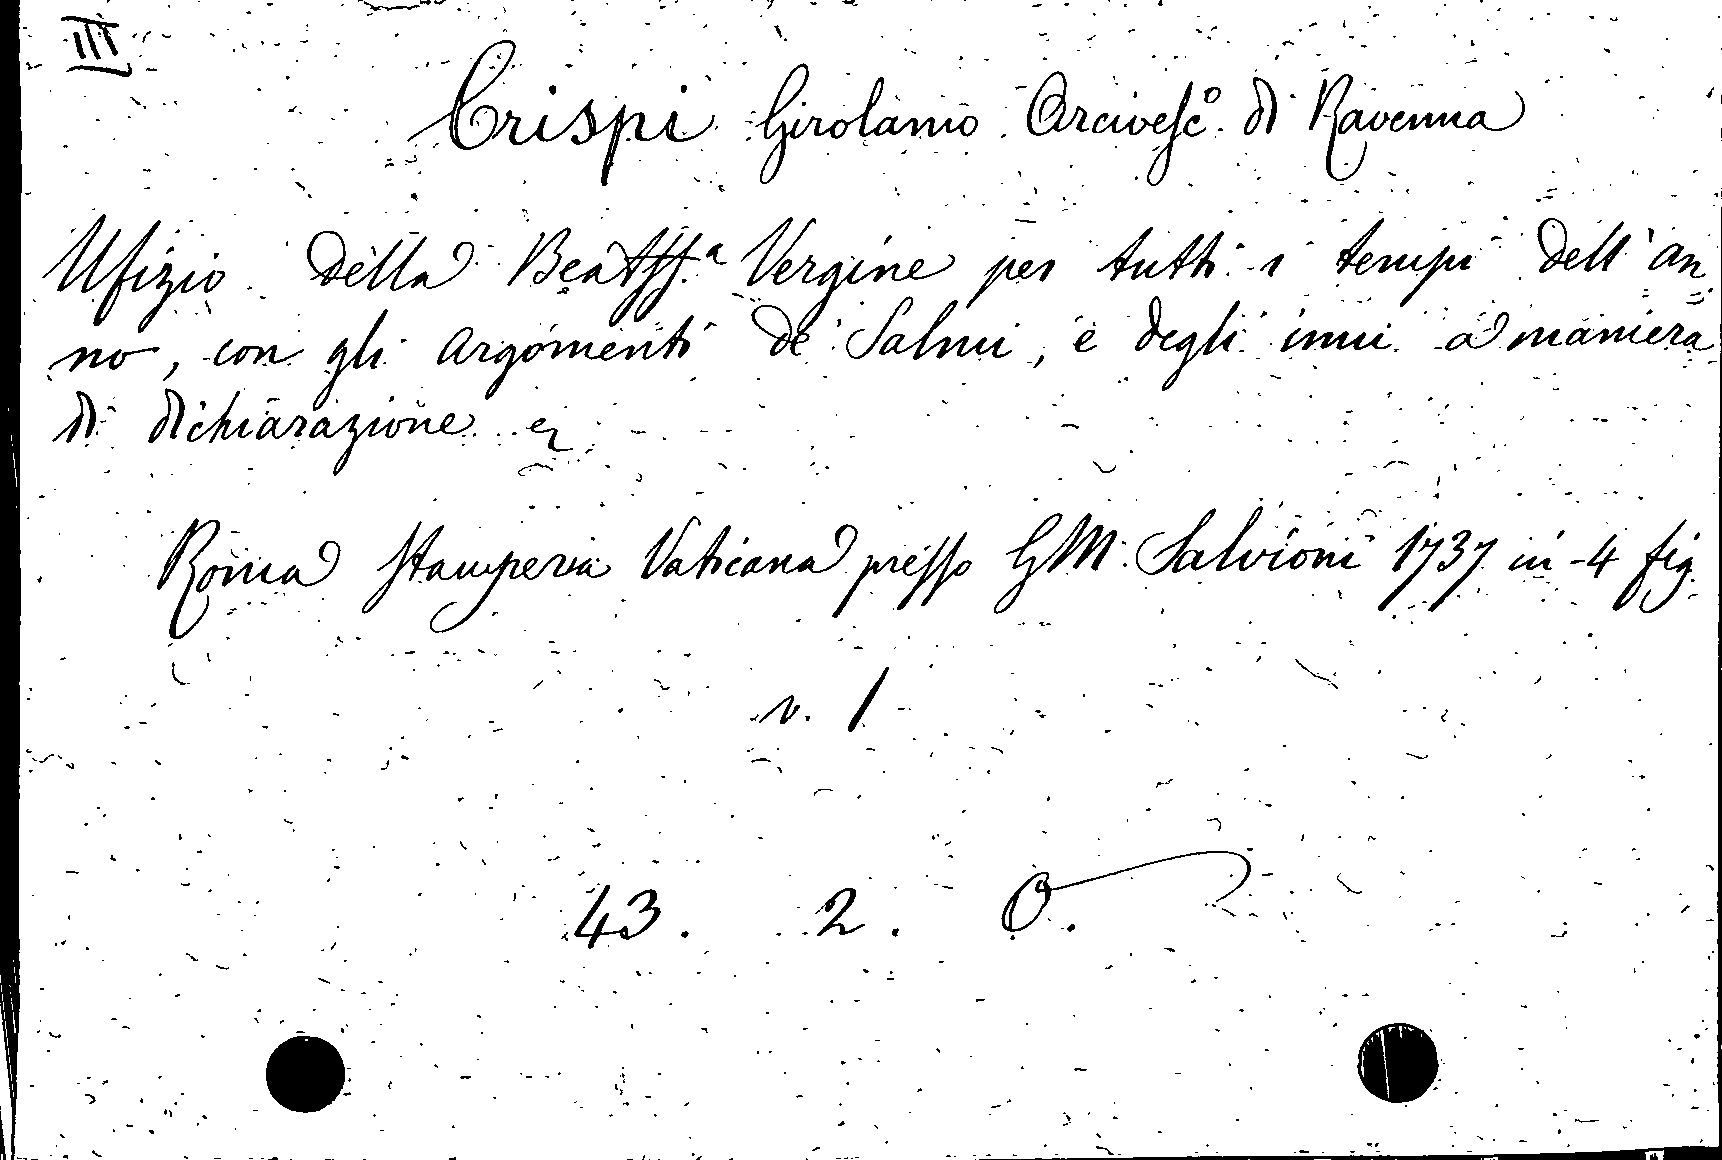 III
Crispi Girolamo Arcivesc.º di Ravenna
Ufizio della Beatiss.ª Vergine per tutti i tempi dell'an
no, con gli argomenti de' Salmi, e degli inni a maniera
di dichiarazione
Roma Stamperia Vaticana presso G M. Salvioni 1737 in-4 fig.
v. 1
43. 2. O.